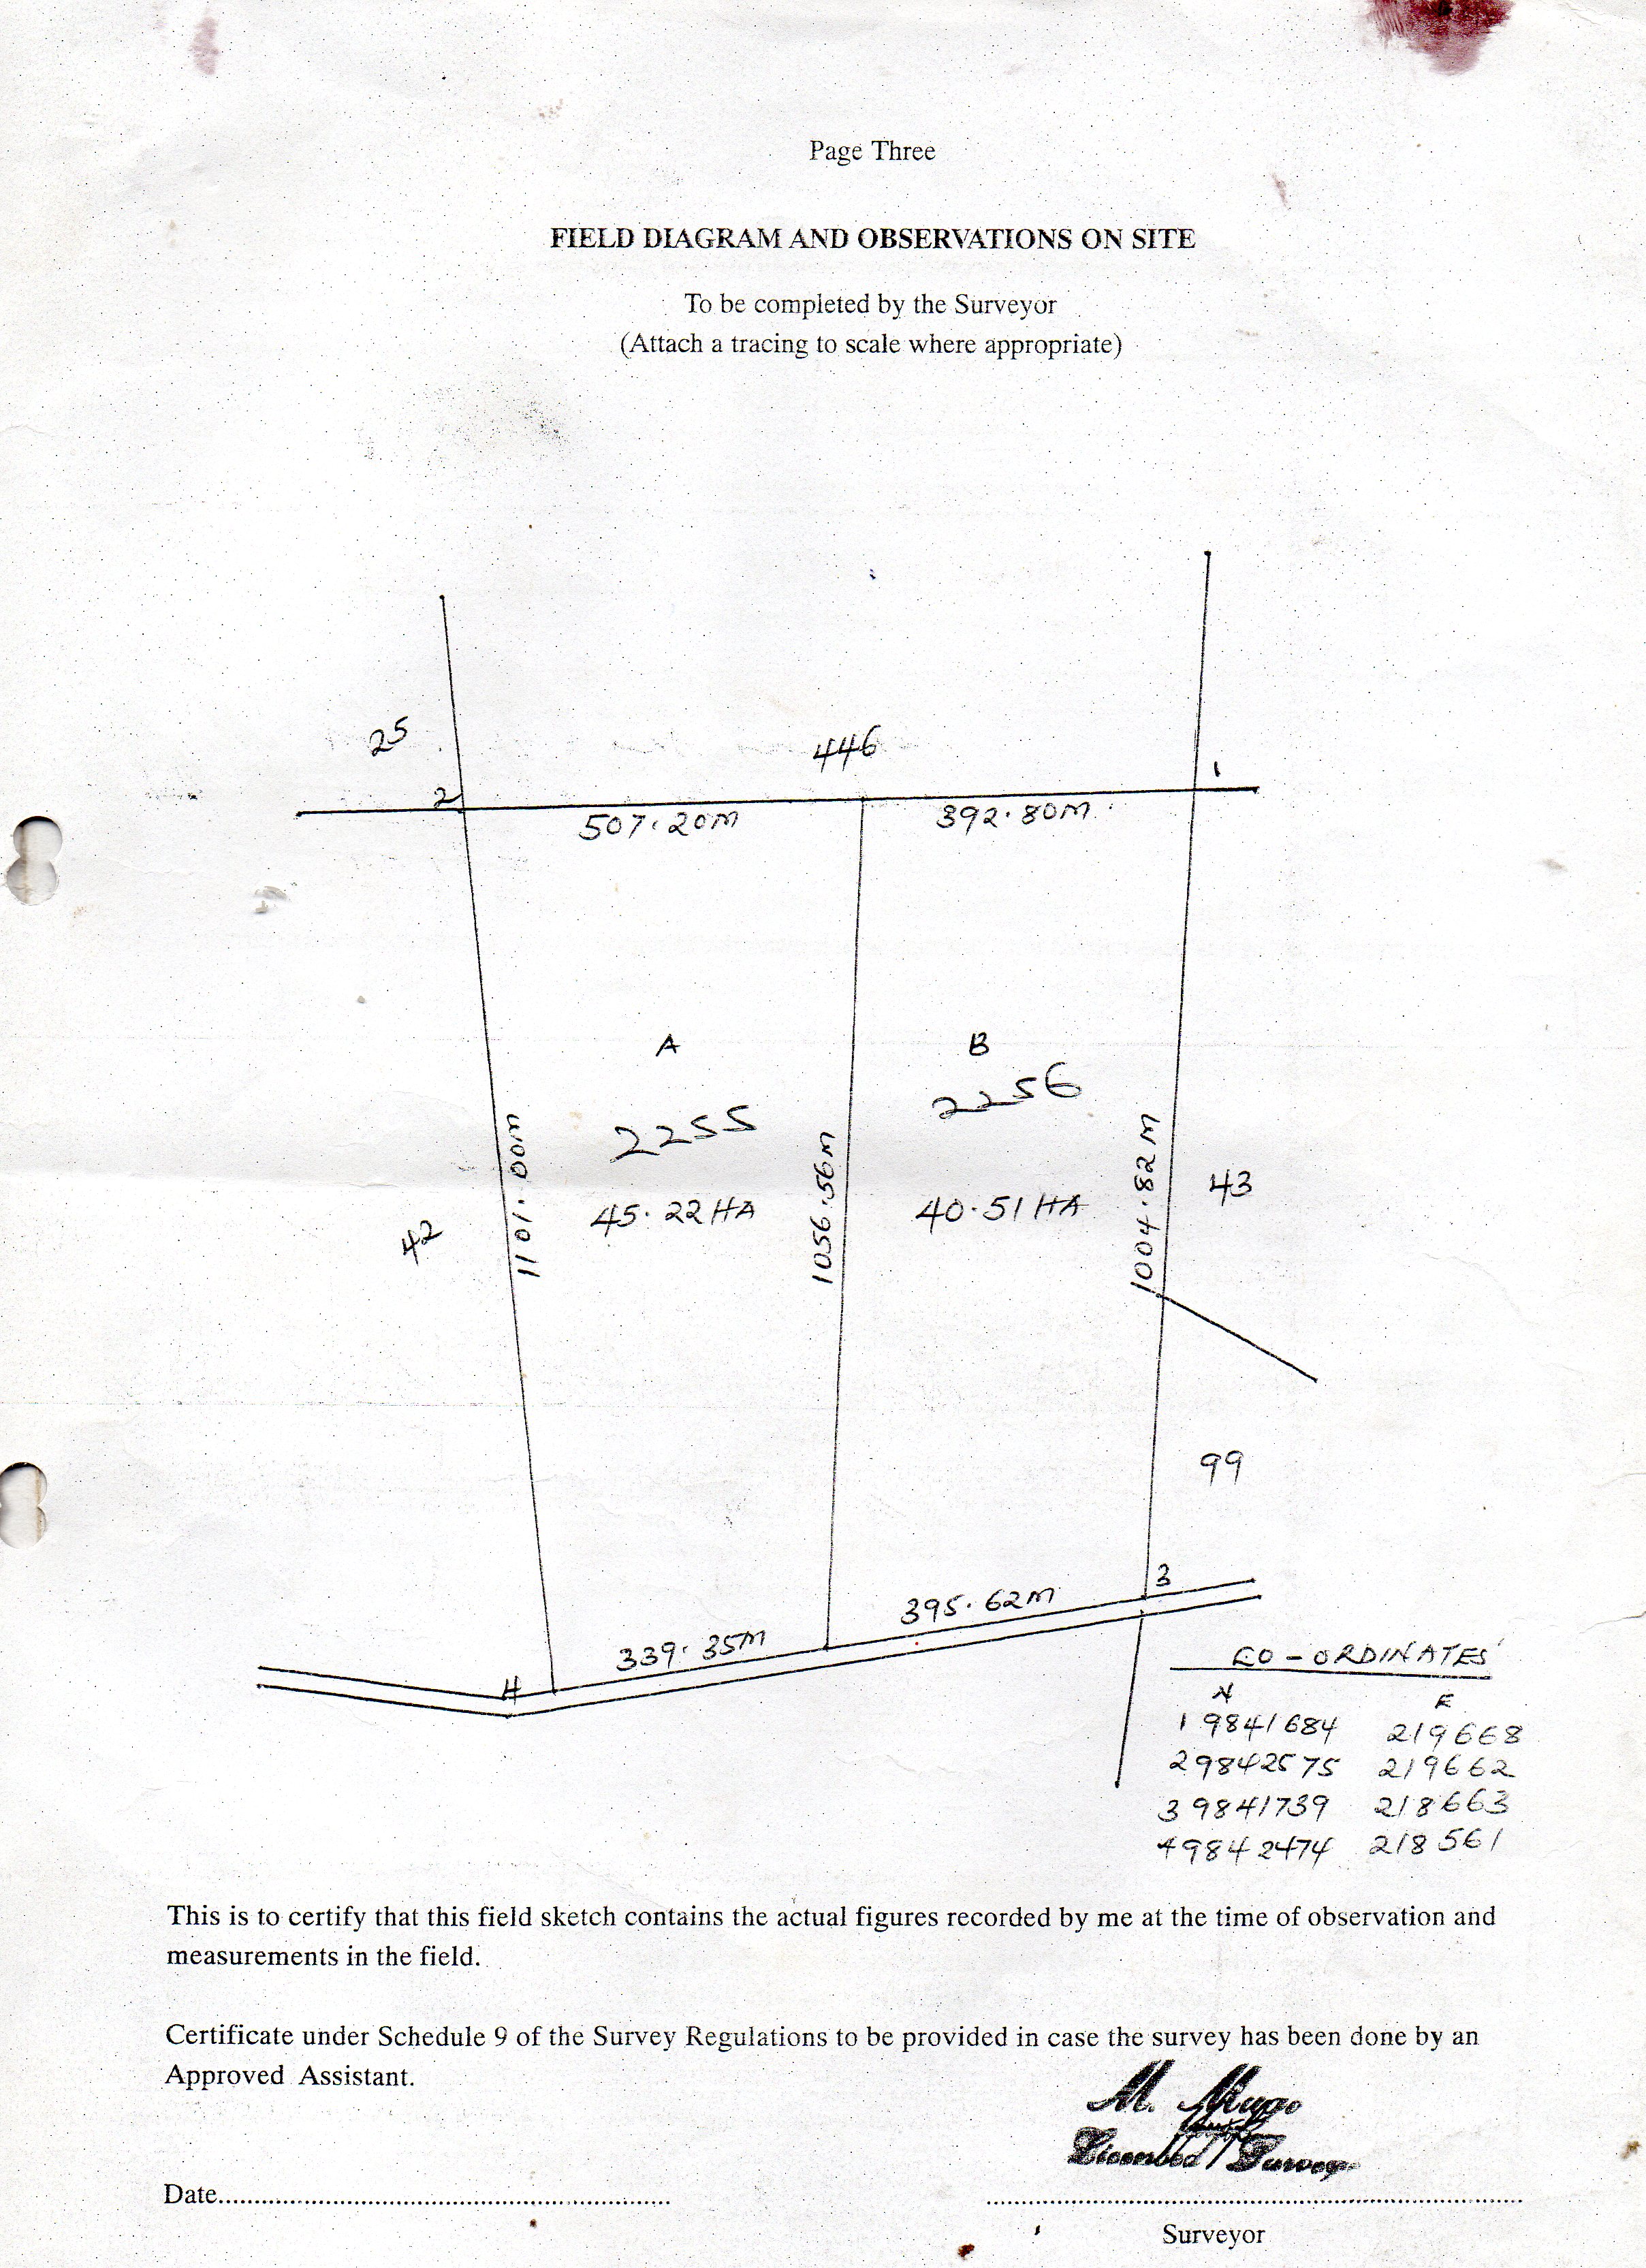 Page Three
FIELD DIAGRAM AND OBSERVATIONS ON SITE
To be completed by the Surveyor
(Attach a tracing to scale where appropriate)
25
446
1
2
507.20M
392.80M
A
B
2255
2256
1101.00M
1056.56M
1004.82M
45.22HA
40.51HA
43
42
99
3
395.62M
339.35M
4
CO-ORDINATES
N E
1 9841684 219668
2 9842575 219662
3 9841739 218663
4 9842474 218561
This is to certify that this field sketch contains the actual figures recorded by me at the time of observation and
measurements in the field.
Certificate under Schedule 9 of the Survey Regulations to be provided in case the survey has been done by an
Approved Assistant.
M. Mugo
Licensed Surveyor
Date
Surveyor